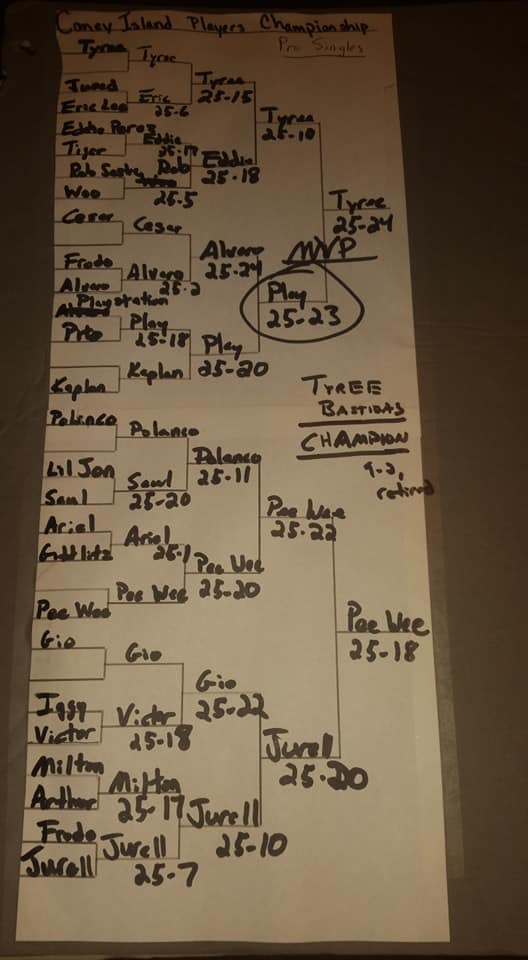 Coney Island Players Championship
Pro Singles
Tyree
Tyree
Jured
Eric Loo
Eric
25-6
Tyree
25-15
Eddie Perez
Tiger
Eddie
25-17
Rob
Woo
Rob
25-5
Eddie
25-18
Tyree
25-10
Cesar
Cesar
Frodo
Alvaro
Alvaro
25-2
Alvaro
25-24
Playstation
Prto
Play
25-18
Kaplan
Kaplan
Play
25-20
MVP
Play
25-23
Tyree
25-24
TYREE
BASTIDAS
CHAMPION
9-2,
retired
Polanco
Polanco
Lil Jon
Saml
Saml
25-20
Polanco
25-11
Ariel
Gottlitz
Ariel
25-1
Pee Wee
Pee Wee
Pee Wee
25-20
Pee Wee
25-22
Gio
Gio
Iggy
Victor
Victor
25-18
Gio
25-22
Milton
Arthur
Milton
25-17
Frodo
Jurell
Jurell
25-7
Jurell
25-10
Jurell
25-20
Pee Wee
25-18